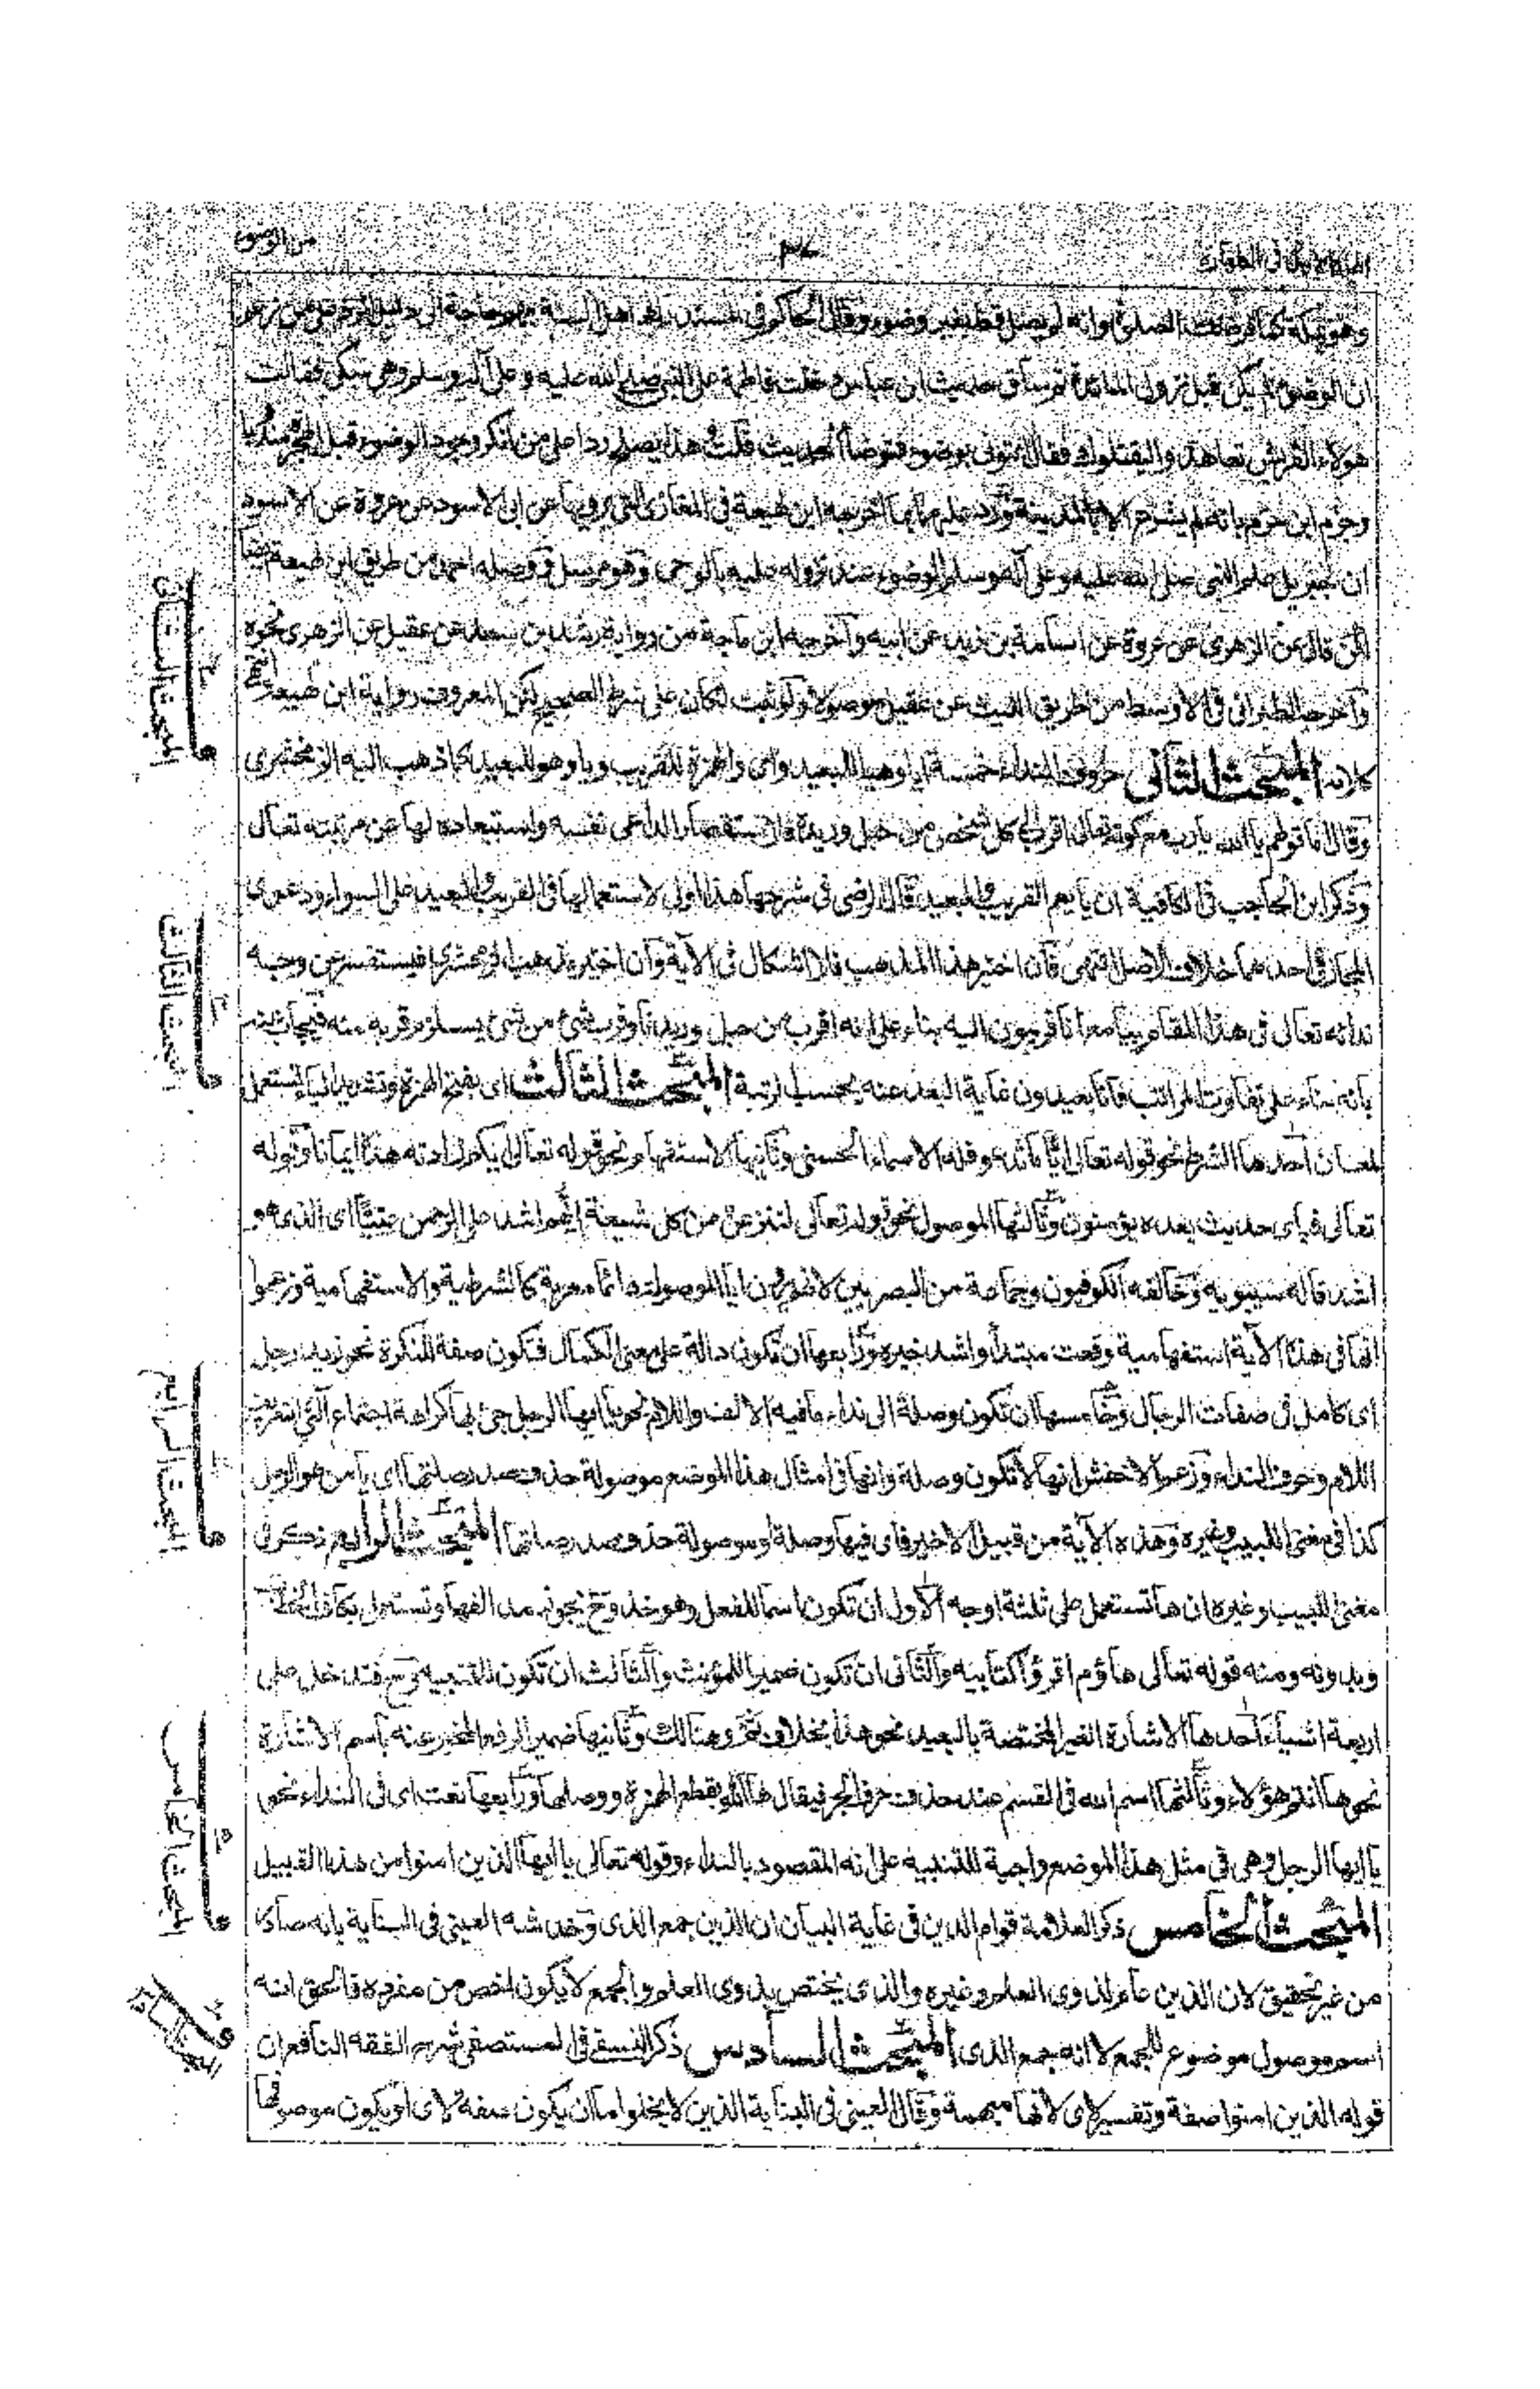 من الوضوء
وهو بمكة كما فرضت الصلوة وانه لم يصل قط بغير وضوء وقال الحاكم في المستدرك اهل السنة بهم حاجة الى دليل الرد على من زعم
ان الوضوء لم يكن قبل نزول المائدة ثم ساق حديث ابن عباس دخلت فاطمة على النبي صلى الله عليه وعلى آله وسلم وهي تبكي فقالت
هؤلاء القريش تعاهدوا ليقتلوك فقال ائتوني بوضوء فتوضأ الحديث قلت هذا يصلح ردا على من انكر وجود الوضوء قبل الهجرة
وجزم ابن حزم بانه لم يشرع الا بالمدينة ورد عليهما بما اخرجه ابن لهيعة في المغازي التي يرويها عن ابي الاسود عن عروة عن الاسود
ان جبريل علم النبي صلى الله عليه وعلى آله وسلم الوضوء عند نزوله عليه بالوحي وهو مرسل ووصله احمد من طريق ابن لهيعة ايضا
لكن قال عن الزهري عن عروة عن اسامة بن زيد عن ابيه وآخرجه ابن ماجة من رواية رشد بن سعد عن عقيل عن الزهري نحوه
وآخرجه الطبراني في الاوسط من طريق الليث عن عقيل موصولا ولو ثبت لكان على شرط الصحيح لكن المعروف رواية ابن لهيعة انتهى
كلامه المبحث الثاني حروف النداء خمسة ايا وهيا للبعيد واى والهمزة للقريب ويا وهو للبعيد كما ذهب اليه الزمخشري
وقال اما قولهم يا الله يا رب مع كونه تعالى اقرب الى كل شخص من حبل وريده فلاستقصار الداعى نفسه واستبعاده لها عن مرتبته تعالى
وذكر ابن الحاجب في الكافية ان يا يعم القريب والبعيد قال الرضى في شرحها هذا اولى لاستعمالها في القريب والبعيد على السواء ودعوى
المجاز في احدهما خلاف الاصل انتهى فان اختير هذا المذهب فلا اشكال في الآية وان اختير مذهب الزمخشري فيستفسر عن وجه
ندائه تعالى في هذا المقام بيا مع انا قريبون اليه بناء على انه اقرب من حبل وريدنا وقرب شئ من شئ يستلزم قربه منه فيجاب عنه
بانه بناء على تفاوت المراتب فانا بعيدون غاية البعد عنه بحسب الرتبة المبحث الثالث اى بفتح الهمزة وتشديد الياء تستعمل
لمعان احدها الشرط نحو قوله تعالى ايا ما تدعو فله الاسماء الحسنى وثانيها الاستفهام نحو قوله تعالى ايكم زادته هذه ايمانا وقوله
تعالى فباى حديث بعده يؤمنون وثالثها الموصول نحو قوله تعالى لننزعن من كل شيعة ايهم اشد على الرحمن عتيا اى الذى هو
اشد قاله سيبويه وخالفه الكوفيون وجماعة من البصريين لانهم يرون ايا الموصولة دائما معربة كالشرطية والاستفهامية وزعموا
انها في هذه الآية استفهامية وقعت مبتدأ واشد خبره ورابعها ان تكون دالة على معنى الكمال فتكون صفة للنكرة نحو زيد رجل
اى كامل في صفات الرجال وخامسها ان تكون وصلة الى نداء ما فيه الالف واللام نحو يا ايها الرجل جئ بها كراهة اجتماع آلتي التعريف
اللام وحرف النداء وزعم الاخفش انها لا تكون وصلة وانها في امثال هذا الموضع موصولة حذف صدر صلتها اى يا من هو الرجل
كذا في مغنى اللبيب وغيره وهذه الآية من قبيل الاخير فاى فيها وصلة او موصولة حذف صدر صلتها المبحث الرابع ذكر في
مغنى اللبيب وغيره ان ها تستعمل على ثلثة اوجه الاول ان تكون اسما للفعل وهو خذ وح يجوز مد الفها وتستعمل بكاف الخطاب
وبدونه ومنه قوله تعالى هاؤم اقرؤا كتابيه والثاني ان تكون ضميرا للمؤنث والثالث ان تكون للتنبيه وح فتدخل على
اربعة اشياء احدها الاشارة الغير المختصة بالبعيد نحو هذا بخلاف ثم وهنالك وثانيها ضمير الرفع المخبر عنه باسم الاشارة
نحو ها انتم هؤلاء وثالثها اسم الله في القسم عند حذف حرف الجر فيقال ها الله بقطع الهمزة ووصلها ورابعها نعت اى في النداء نحو
يا ايها الرجل وهى في مثل هذا الموضع واجبة للتنبيه على انه المقصود بالنداء وقوله تعالى يا ايها الذين امنوا من هذا القبيل
المبحث الخامس ذكر العلامة قوام الدين في غاية البيان ان الذين جمع الذى وخدشه العينى في البناية بانه صادر
من غير تحقيق لان الذين عام لذوى العلم وغيره والذى يختص بذوى العلم والجمع لا يكون اخص من مفرده فالحق انه
اسم موصول موضوع للجمع لا انه جمع الذى المبحث السادس ذكر النسفي في المستصفى شرح الفقه النافع ان
قوله الذين امنوا صفة وتفسير لاى لانها مبهمة وقال العينى في البناية الذين لا يخلو اما ان يكون صفة لاى او يكون موصوفها
المبحث الثاني
المبحث الثالث
المبحث الرابع
المبحث الخامس
المبحث السادس